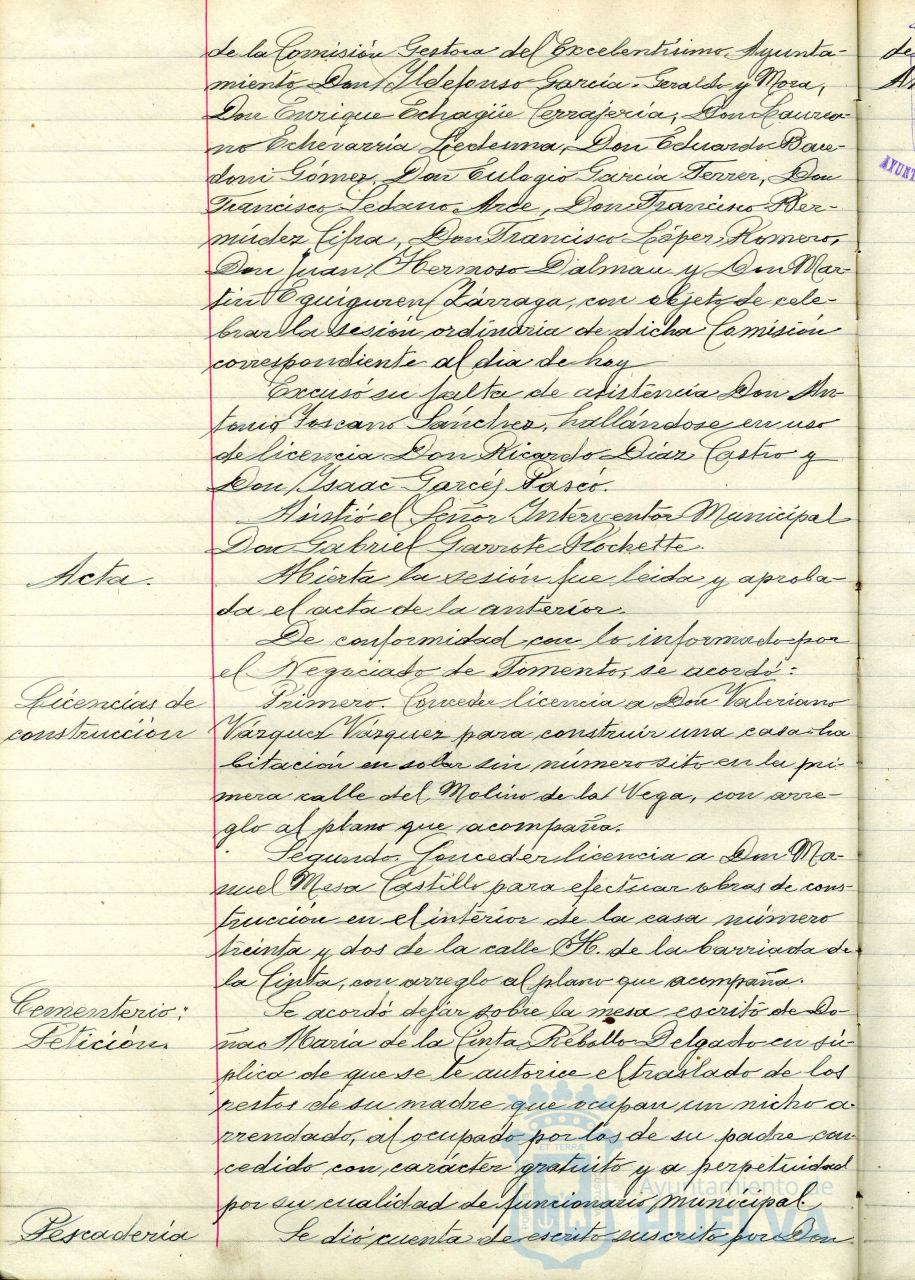 de la Comisión Gestora del Excelentísimo Ayunta-
miento Don Ildefonso García-Geraldo y Mora,
Don Enrique Echagüe Cerrajería, Don Laurea-
no Echevarría Ledesma, Don Eduardo Bace-
doni Gómez, Don Eulogio García Ferrer, Don
Francisco Sedano Arce, Don Francisco Ber-
múdez Cifra, Don Francisco López Romero,
Don Juan Hermoso Dalmau y Don Mar-
tin Eguiguren Zárraga, con objeto de cele-
brar la sesión ordinaria de dicha Comisión
correspondiente al dia de hoy
Excusó su falta de asistencia Don An
tonio Toscano Sánchez, hallándose en uso
de licencia Don Ricardo Díaz Castro y
Don Isaac Garcés Pascó.
Asistió el Señor Interventor Municipal
Don Gabriel Garrote Rochette.
Acta.
Abierta la sesión fue leida y aproba-
da el acta de la anterior.
De conformidad con lo informado por
el Negociado de Fomento, se acordó:
Licencias de
construcción
Primero. Conceder licencia a Don Valeriano
Vázquez Vázquez para construir una casa ha
bitación en solar sin número sito en la pri
mera calle del Molino de la Vega, con arre-
glo al plano que acompaña.
Segundo. Conceder licencia a Don Ma-
nuel Mesa Castillo para efectuar obras de cons-
trucción en el interior de la casa número
treinta y dos de la calle H. de la barriada de
la Cinta, con arreglo al plano que acompaña.
Cementerio:
Petición.
Se acordó dejar sobre la mesa escrito de Do-
ña María de la Cinta Rebollo Delgado en sú-
plica de que se le autorice el traslado de los
restos de su madre, que ocupan un nicho a-
rrendado, al ocupado por los de su padre con
cedido con carácter gratuito y a perpetuidad
por su cualidad de funcionario municipal
Pescadería
Se dió cuenta de escrito suscrito por Don
Ayuntamiento de
HUELVA